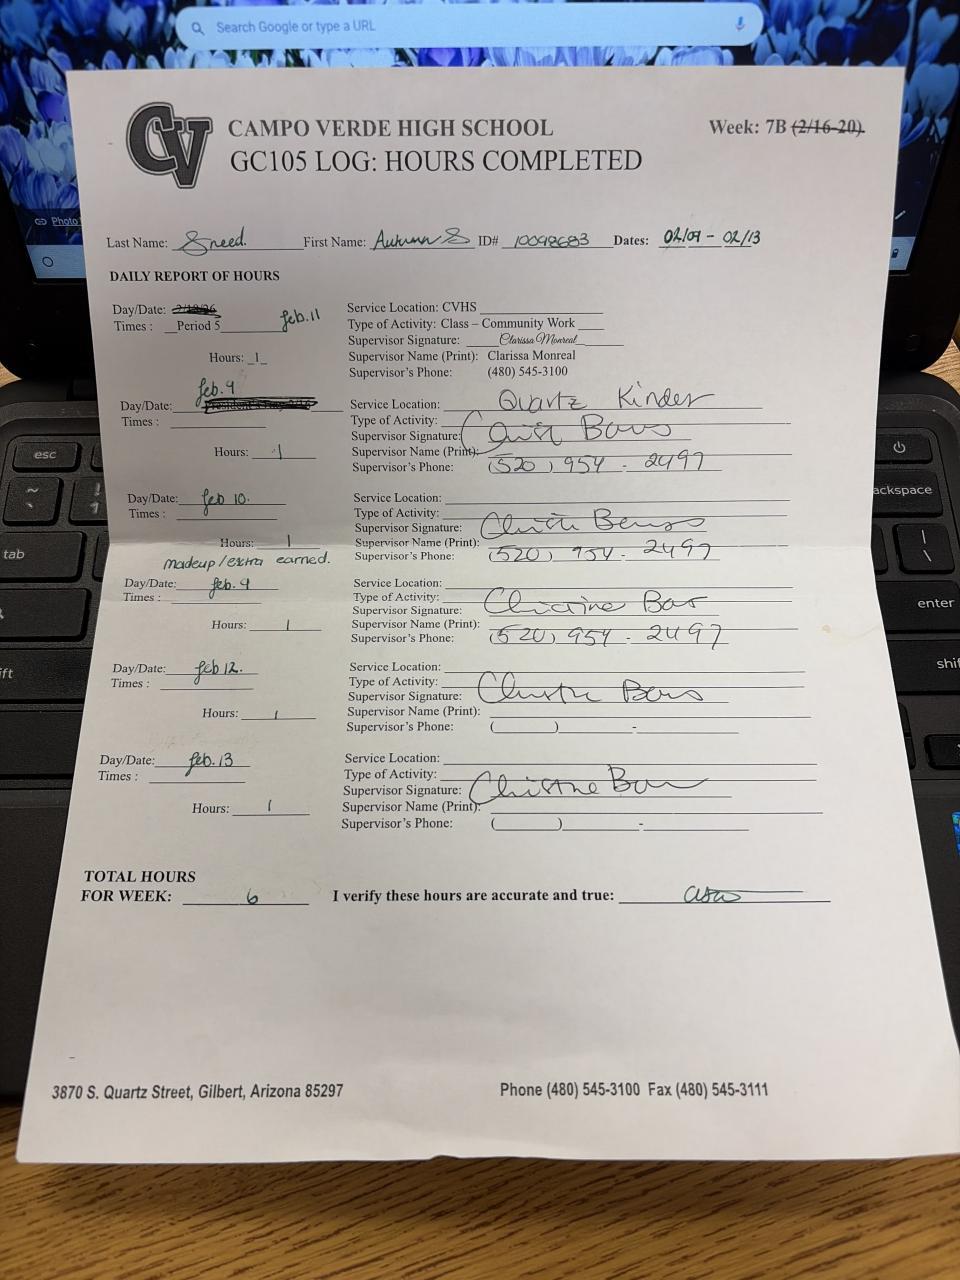 Search Google or type a URL
Photo
CV
CAMPO VERDE HIGH SCHOOL
Week: 7B (2/16-20).
GC105 LOG: HOURS COMPLETED
Last Name: Sneed. First Name: Autumn S ID# 10098683 Dates: 02/09 - 02/13
DAILY REPORT OF HOURS
Day/Date: feb.11
Times : Period 5
Hours: 1
Service Location: CVHS
Type of Activity: Class – Community Work
Supervisor Signature: Clarissa Monreal
Supervisor Name (Print): Clarissa Monreal
Supervisor's Phone: (480) 545-3100
feb. 9
Day/Date:
Times :
Hours: 1
Service Location: Quartz Kinder
Type of Activity:
Supervisor Signature:
Supervisor Name (Print):
Supervisor's Phone: (520) 954 - 2497
Day/Date: feb 10.
Times :
Hours: 1
madeup/extra earned.
Service Location:
Type of Activity:
Supervisor Signature:
Supervisor Name (Print):
Supervisor's Phone: (520) 954 - 2497
Day/Date: feb. 9
Times :
Hours: 1
Service Location:
Type of Activity:
Supervisor Signature:
Supervisor Name (Print):
Supervisor's Phone: (520) 954 - 2497
Day/Date: feb 12.
Times :
Hours: 1
Service Location:
Type of Activity:
Supervisor Signature:
Supervisor Name (Print):
Supervisor's Phone: ( ) -
Day/Date: feb. 13
Times :
Hours: 1
Service Location:
Type of Activity:
Supervisor Signature: Christine
Supervisor Name (Print):
Supervisor's Phone: ( ) -
TOTAL HOURS
FOR WEEK: 6 I verify these hours are accurate and true:
3870 S. Quartz Street, Gilbert, Arizona 85297
Phone (480) 545-3100 Fax (480) 545-3111
esc
tab
backspace
enter